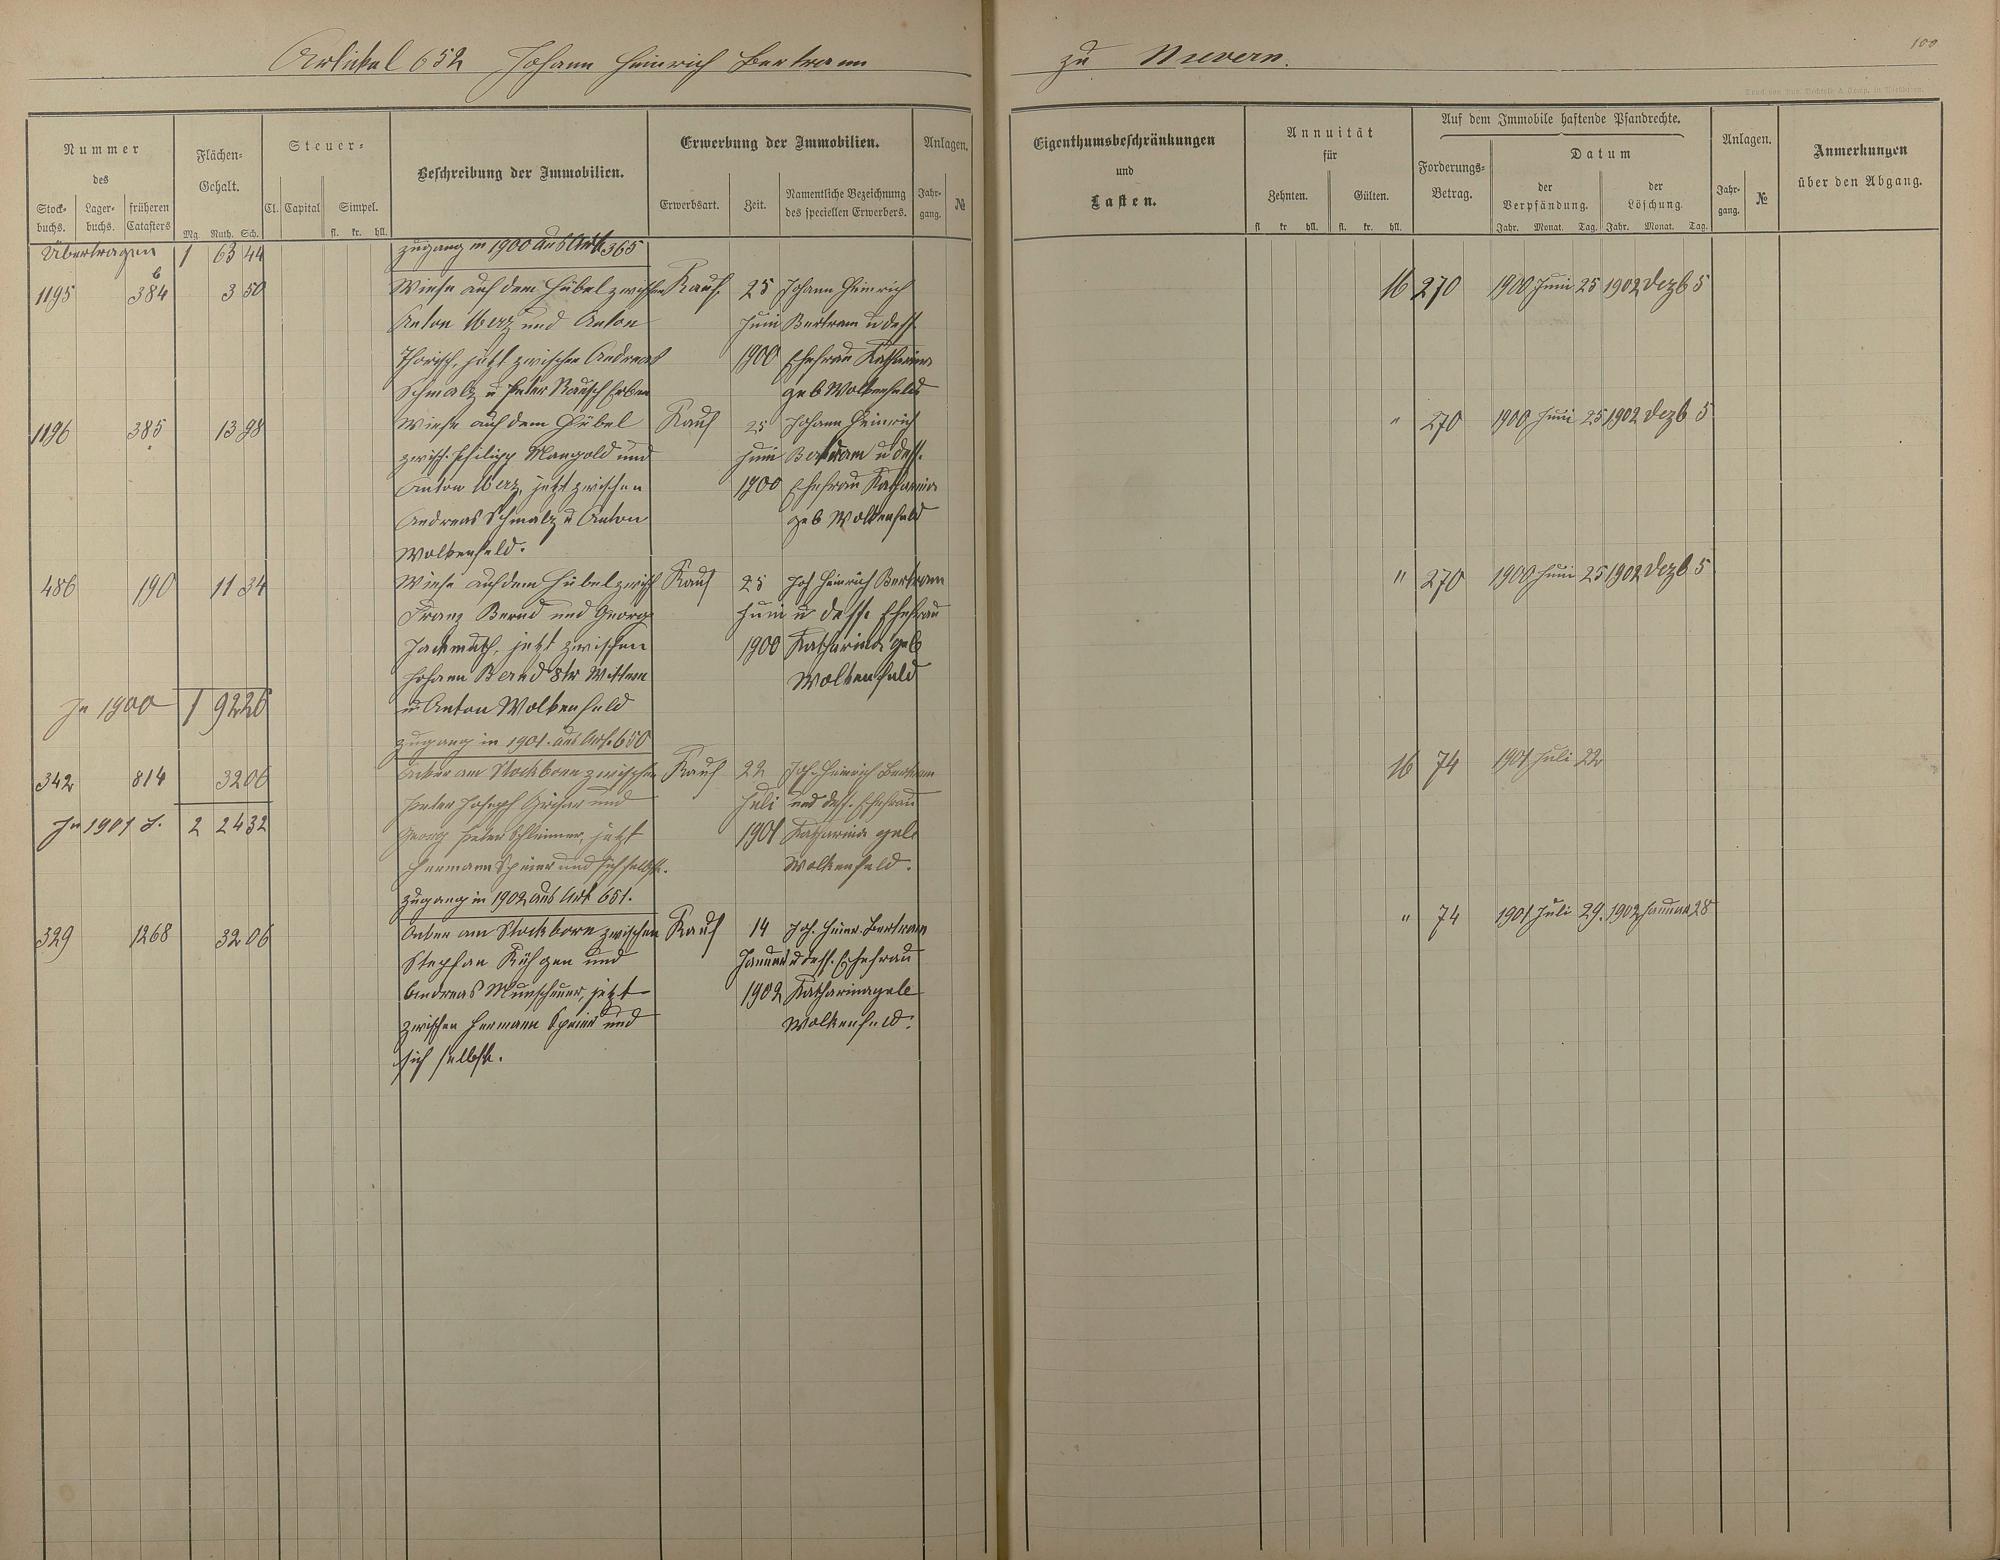 Artickel 652 Johann Heinrich Bertram
zu Nievern.
100
Nummer
des
Stock-
buchs.
Lager-
buchs.
früheren
Catasters
Flächen-
Gehalt.
Mg. Ruth. Sch.
Steuer-
Cl. Capital Simpel.
fl. kr. hll.
Beschreibung der Immobilien.
Erwerbung der Immobilien.
Erwerbsart.
Zeit.
Namentliche Bezeichnung
des speciellen Erwerbers.
Anlagen.
Jahr-
gang.
№
Übertragen 1 63 44
zugang in 1900 aus Art. 365
1195 384 b 3 50 Wiese auf dem Hübel zwischen Kauf. 25 Johann Heinrich
Anton Merz und Anton Juni Bertram u dess.
jetzt zwischen Andreas 1900 Ehefrau Katharina
Schmalz u Peter Rausch Erben geb Wolkenfeld
1196 385 13 98 Wiese auf dem Hübel Kauf 25 Johann Heinrich
zwisch. Philipp Mangold und Juni Bertram u dess.
Anton Merz, jetzt zwischen 1900 Ehefrau Katharina
Andreas Schmalz u Anton geb Wolkenfeld
Wolkenfeld.
486 190 11 34 Wiese auf dem Hübel zwisch Kauf 25 Joh Heinrich Bertram
Franz Bernd und Georg Juni u dess. Ehefrau
jetzt zwischen 1900 Katharina geb
Johann Bernd 8tr Wittwe Wolkenfeld
In 1900 1 92 26 u Anton Wolkenfeld
zugang in 1901. aus Art. 650
342 814 32 06 Acker am Stockborn zwischen Kauf 22 Joh. Heinrich Bertram
Peter Joseph und Juli und dess. Ehefrau
In 1901 S. 2 24 32 Georg Peter Schleimer, jetzt 1901 Katharina geb
Hermann Speier und sich selbst. Wolkenfeld.
zugang in 1902 aus Art 651.
329 1268 32 06 Acker am Stockborn zwischen Kauf 14 Joh. Heinr. Bertram
Stephan und Januar u dess. Ehefrau
Andreas Munscheuer, jetzt 1902 Katharina geb
zwischen Hermann Speier und Wolkenfeld.
sich selbst.
Eigenthumsbeschränkungen
und
Lasten.
Annuität
für
Zehnten.
Gülten.
fl kr hll. fl. kr. hll.
Auf dem Immobile haftende Pfandrechte.
Forderungs-
Betrag.
Datum
der
Verpfändung.
der
Löschung.
Jahr. Monat. Tag. Jahr. Monat. Tag.
Anlagen.
Jahr-
gang.
№
Anmerkungen
über den Abgang.
16 270 1900 Juni 25 1902 Dezb 5
" 270 1900 Juni 25 1902 Dezb 5
" 270 1900 Juni 25 1902 Dezb 5
16 74 1901 Juli 22
" 74 1901 Juli 29. 1902 Januar 28